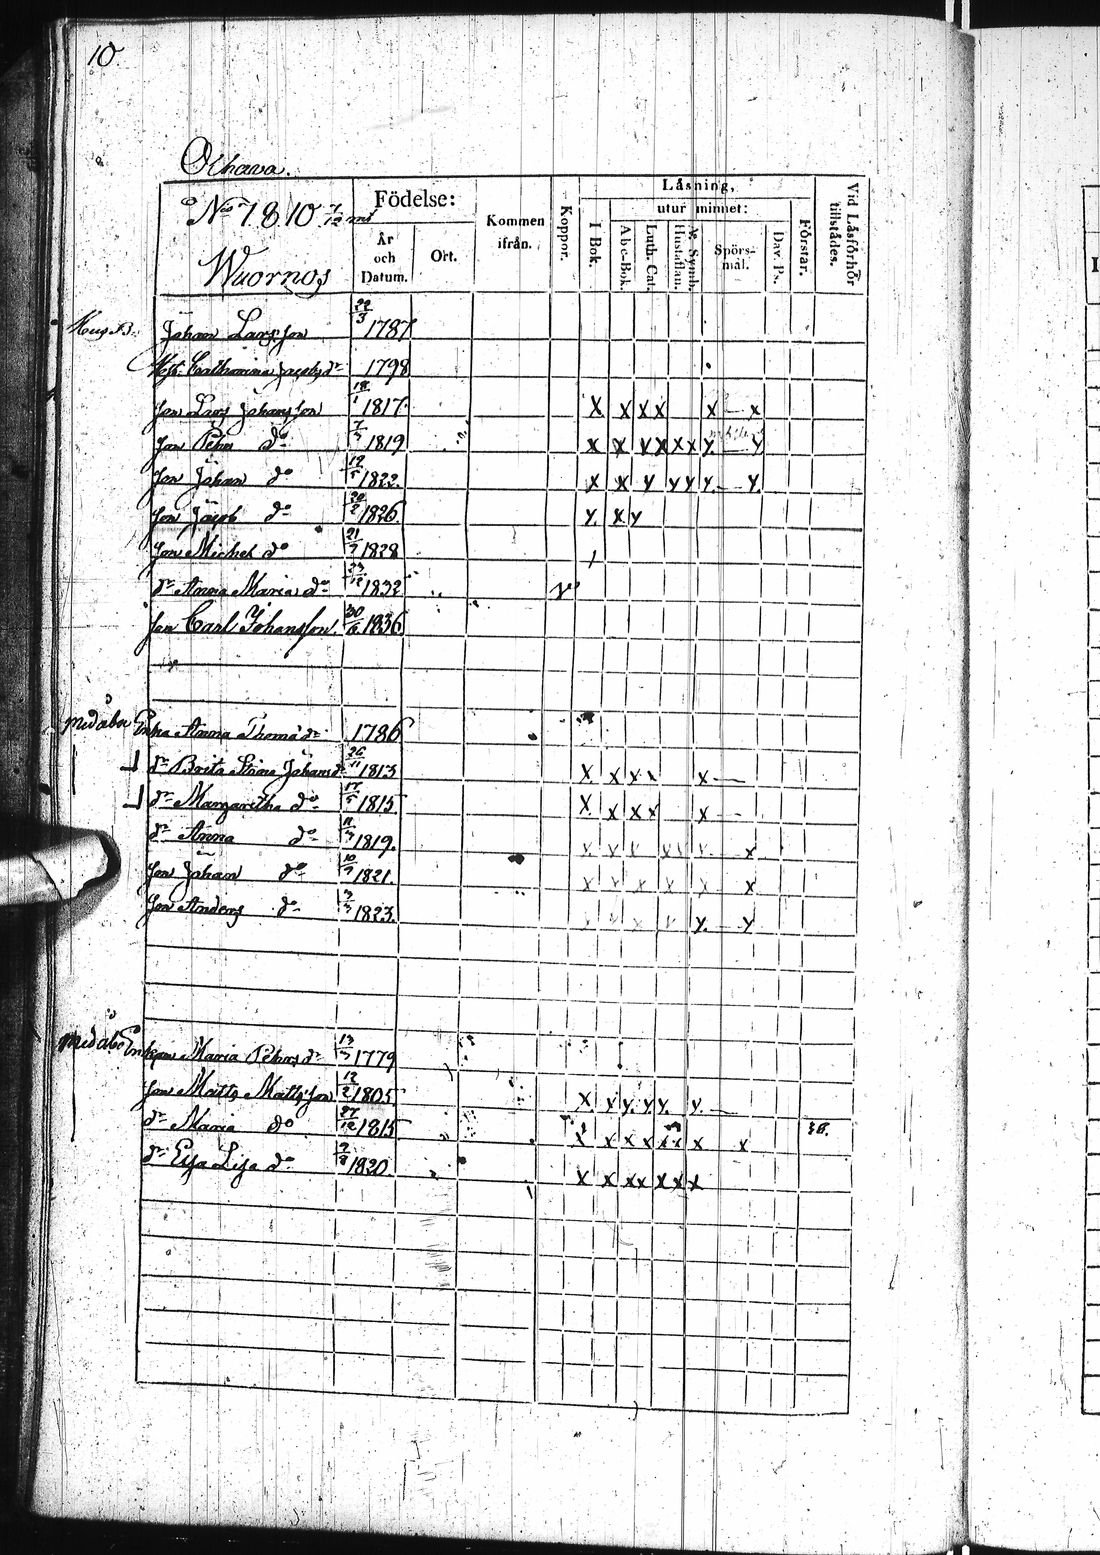 10.
Olhava.
No 18 10 7/12 mt
Wuornos
Födelse:
År
och
Datum.
Ort.
Kommen
ifrån.
Koppor.
Läsning,
utur minnet:
I Bok.
Abc-Bok.
Luth. Cat.
Hustaflan.
A. Symb.
Spörs-
mål.
Dav. Ps.
Förstar.
Vid Läsförhör
tillstädes.
Johan Larsson 22/3 1787
Catharina Jacobsdr 1798
Son Lars Johansson 18/1 1817 X X X X X X
Son Petter do 7/7 1819 X X X X X X X X
Son Johan do 12/5 1822 X X X X X X X
Son Jacob do 20/2 1826 X X X
Son Michel do 21/7 1828
dr Anna Maria do 23/12 1832
Son Carl Johansson 30/6 1836
med åbor Enka Anna Thomædr 1786
dr Brita Stina Johansdr 26/11 1813 X X X X X
dr Margaretha do 17/5 1815 X X X X X
dr Anna do 11/3 1819 X X X X X X X
Son Johan do 10/7 1821 X X X X X X
Son Anders do 3/3 1823 X X X X X X
med åbo Enkan Maria Pehrsdr 13/3 1779
Son Matts Mattsson 12/2 1805 X X X X X X
dr Maria do 27/12 1815 X X X X X X X X
dr Eva Lisa do 7/8 1820 X X X X X X X